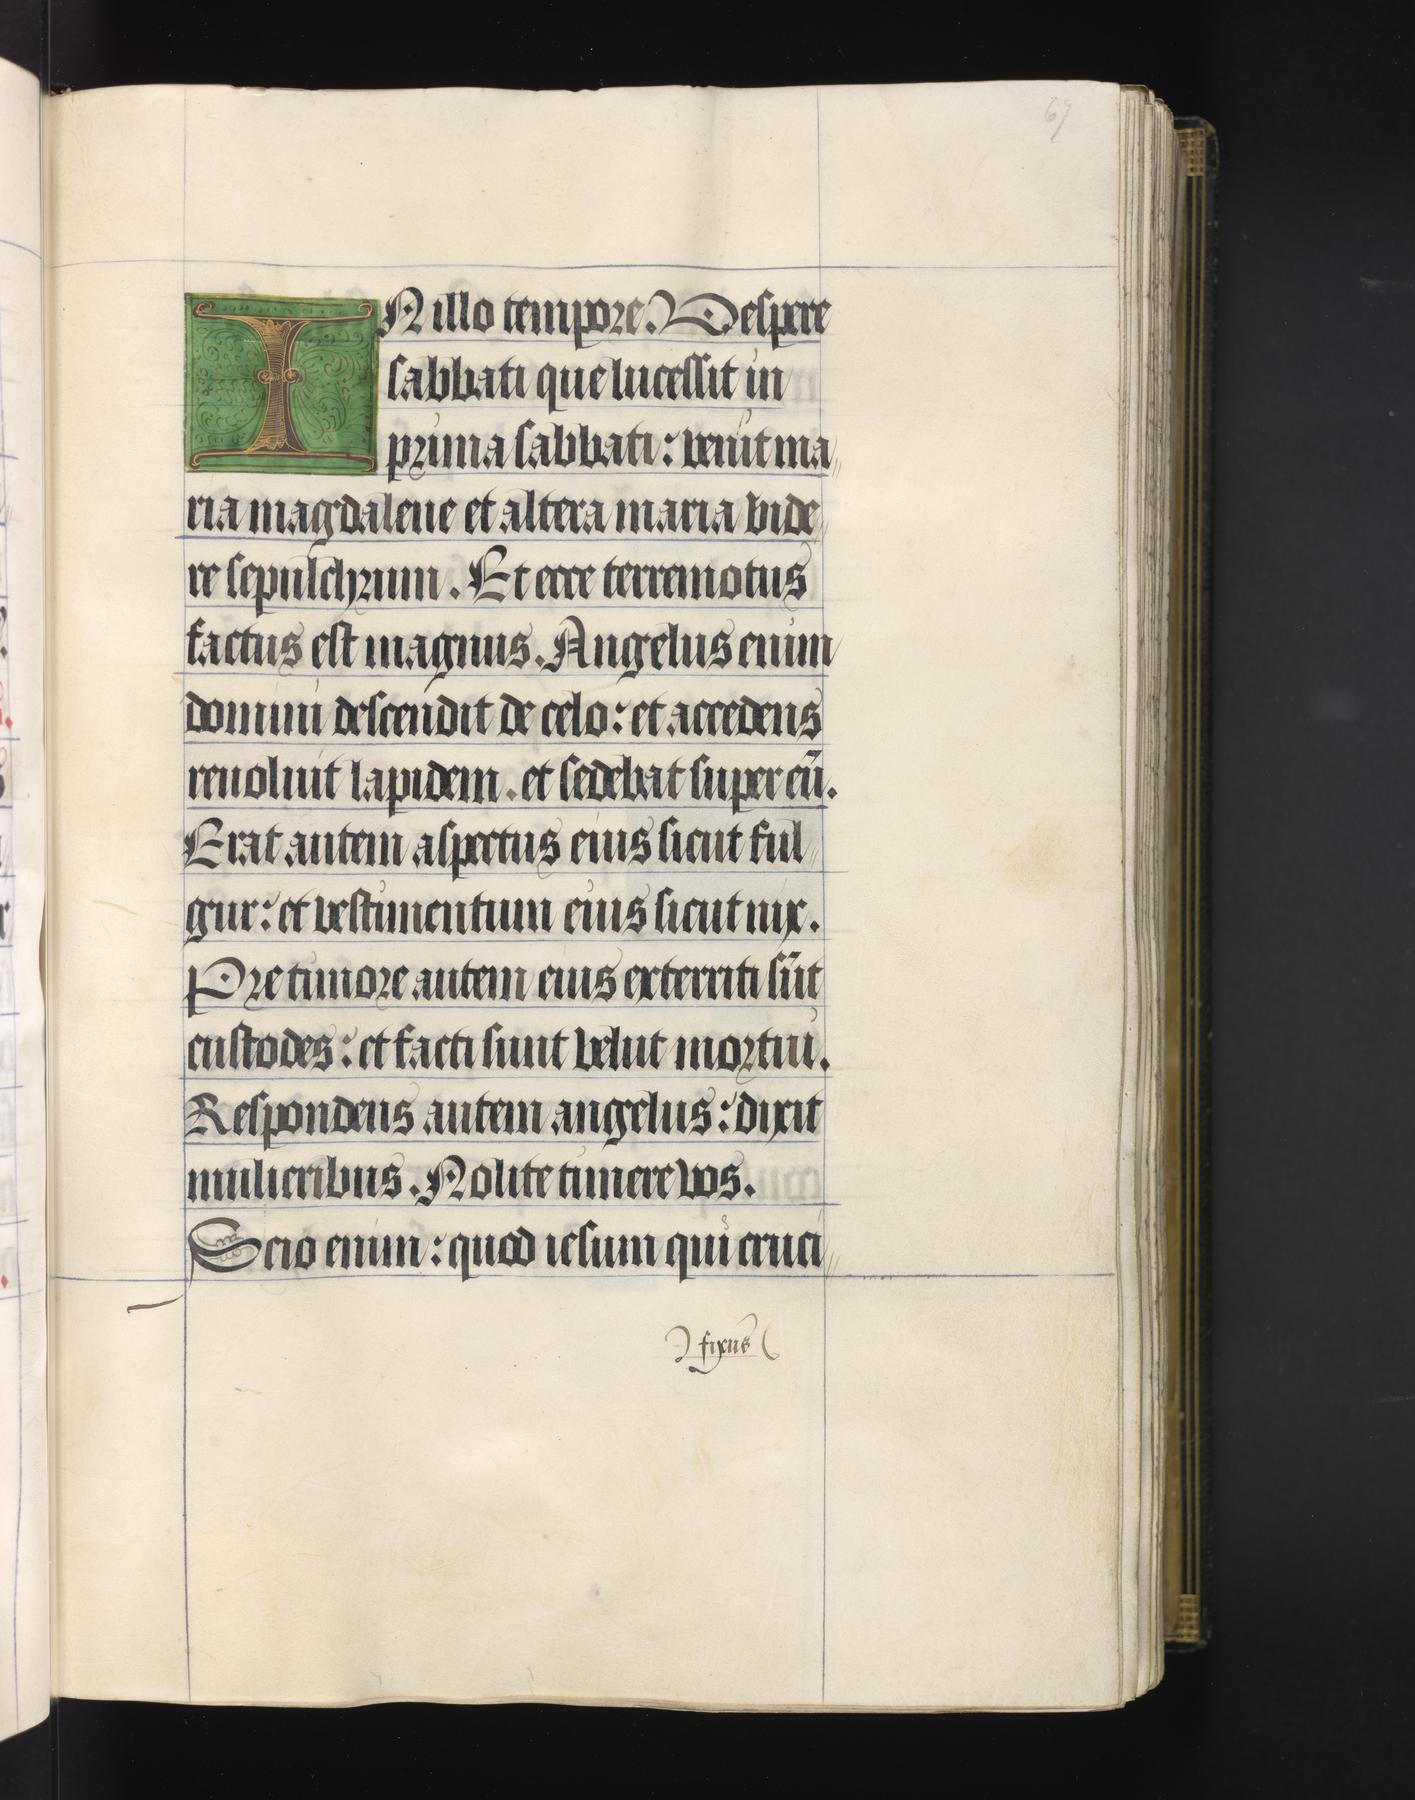 69
IN illo tempore. Vespere
sabbati que lucessit in
prima sabbati: venit ma//
ria magdalene et altera maria vide//
re sepulchrum. Et ecce terremotus
factus est magnus. Angelus enim
domini descendit de celo: et accedens
reuoluit lapidem. et sedebat super eū.
Erat autem aspectus eius sicut ful//
gur: et vestimentum eius sicut nix.
Pre timore autem eius exterriti sūt
custodes: et facti sunt velut mortui.
Respondens autem angelus: dixit
mulieribus. Nolite timere vos.
Scio enim: quod iesum qui cruci//
fixus